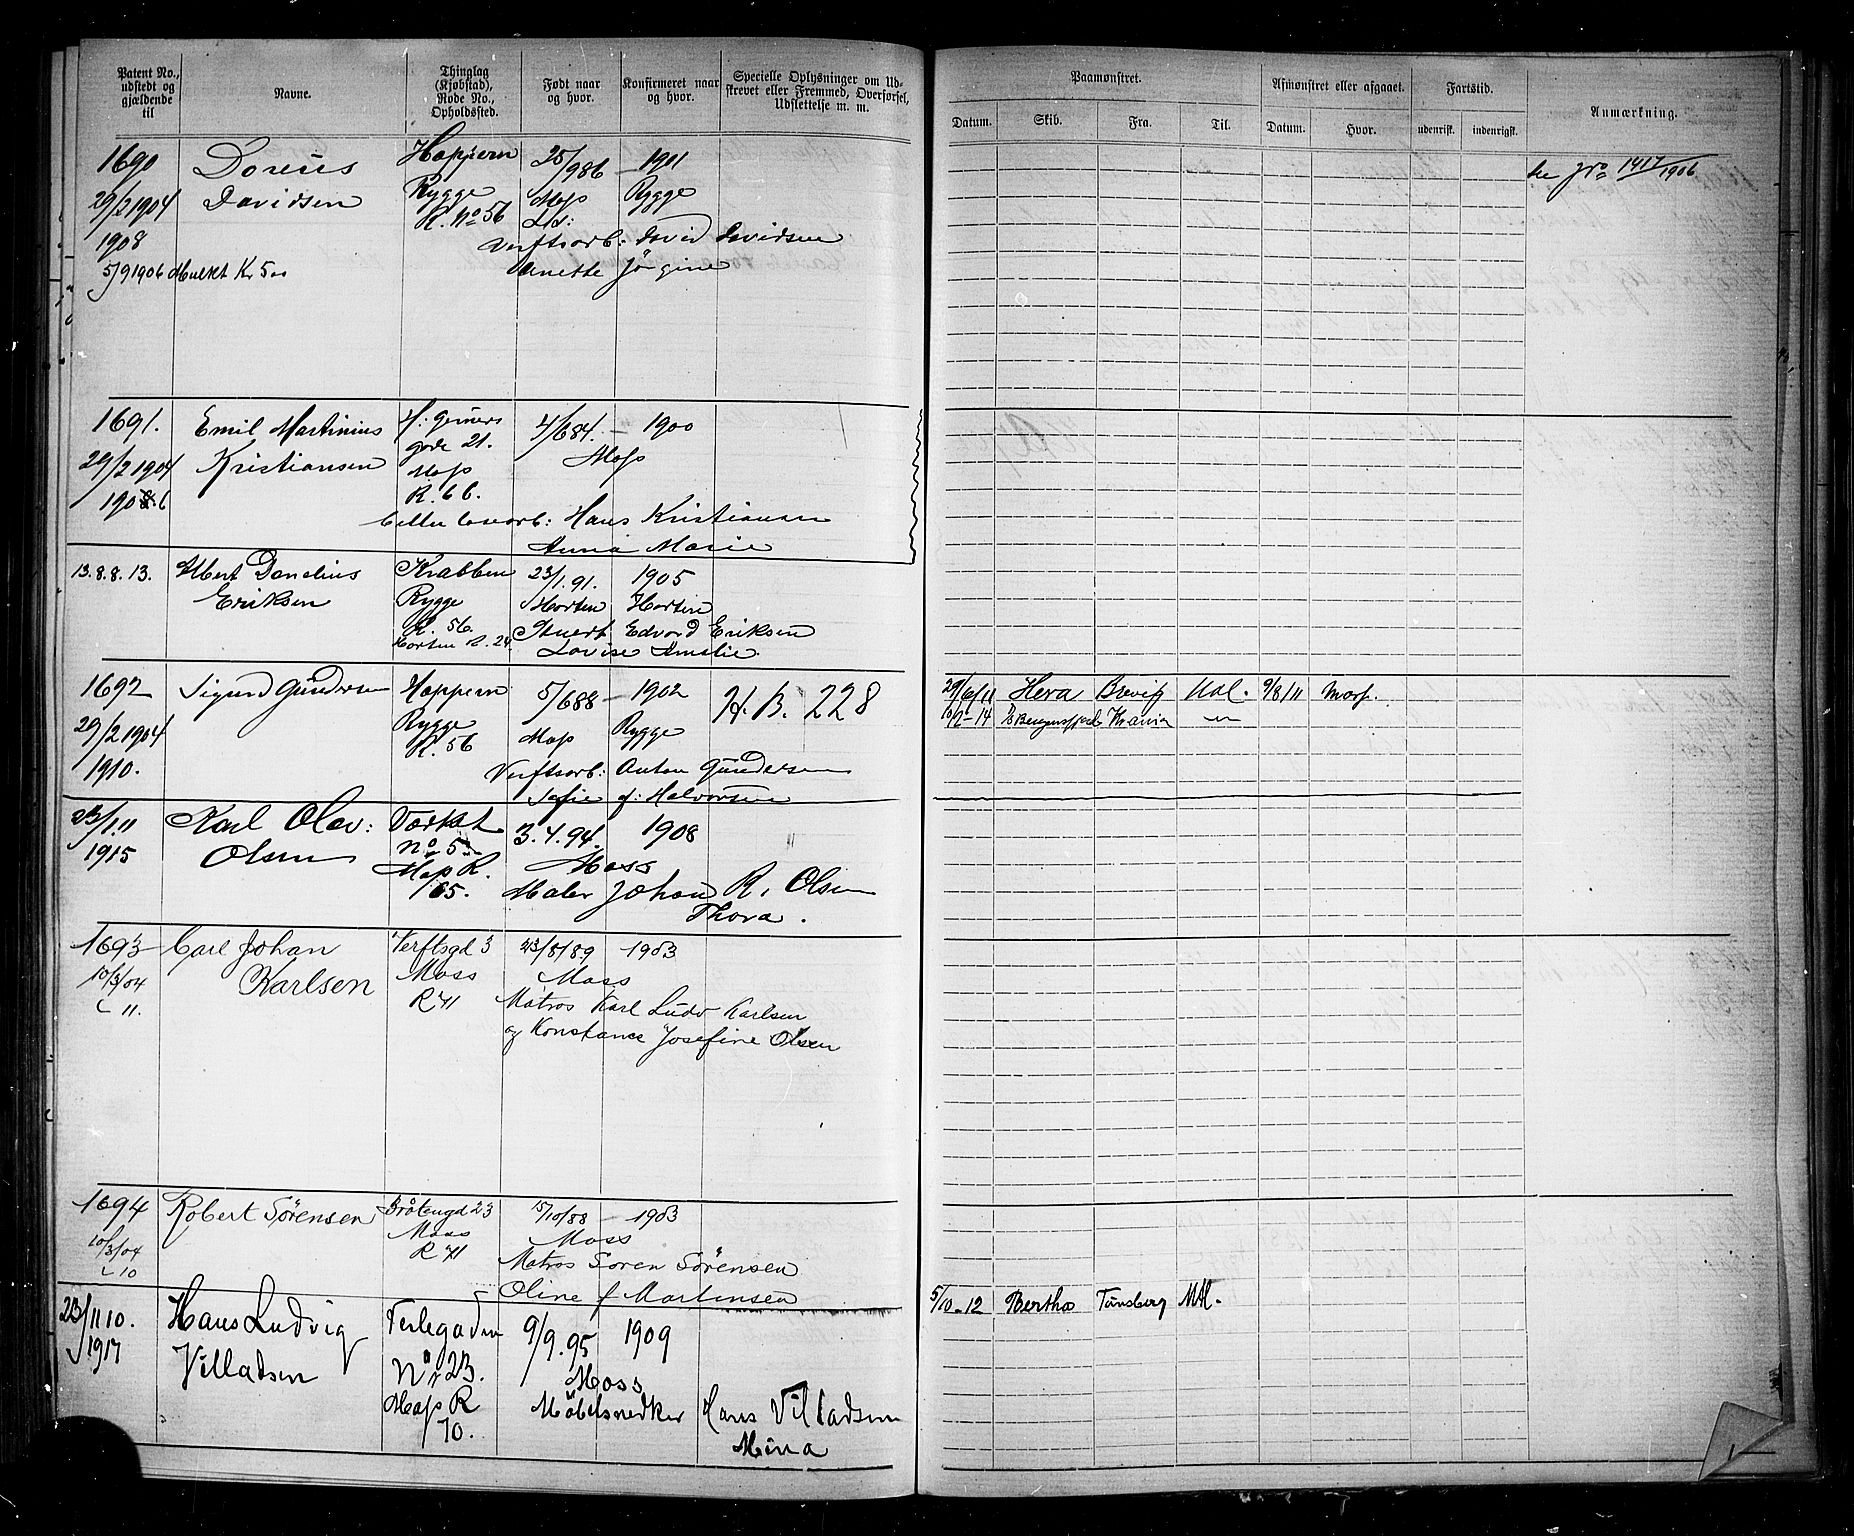 Patent No., udstedt og gjældende til
Navne.
Thinglag (Kjøbstad), Rode No., Opholdssted.
Født naar og hvor.
Konfirmeret naar og hvor.
Specielle Oplysninger om Udskrevet eller Fremmed, Overførsel, Udslettelse m. m.
Paamønstret.
Datum. Skib. Fra. Til.
Afmønstret eller afgaaet.
Datum. Hvor.
Fartstid.
udenrisk. indenrigsk.
Anmærkning.
1690 Doreus Hoppern 25/986 - 1901
29/2 1904 Davidsen Rygge Moss Rygge
1908 R. No 56
Verftsarb: David Davidsen
5/9 1906 Mulkt Kr 5 Anette Jørgine
se No 1417/1906
1691. Emil Martinius H: Gerners 4/684. - 1900
29/2 1904 Kristiansen gade 21. Moss
1908.6 Moss
R. 66.
Hans Kristiansen
Anna Marie
13.8.8.13. Albert Danelius Krabben 23/1.91. 1905
Eriksen Rygge Horten Horten
R. 56. Stuert Edvard Eriksen
Horten R. 24. Lovise Amalie.
1692 Sigurd Gundersen Hoppern 5/688 - 1902 H.B. 228
29/2 1904 Rygge Moss Rygge
1910. R. 56
Verftsarb: Anton Gundersen
Sofie f: Halvorsen
29/6/11 Hera Brevig Mal. 9/8/11 Moss.
10/2-14 Bergensfjord Kr.ania
23/1.11 Karl Olav: Værket 3.4.94. 1908
1915 Olsen No 5 Moss
Moss R. Maler Johan R. Olsen
65. Thora.
1693 Carl Johan Verftsgd 3 23/8/89 - 1903
10/3/04 Karlsen Moss Moss
11. R 71 Matros Karl Ludv Karlsen
og Konstance Josefine Olsen
1694 Robert Sørensen Bråtengd 23 15/10/88 - 1903
10/3/04 Moss Moss
10 R 71 Matros Soren Sörensen
Oline f Martinsen
23/11 10. Hans Ludvig Terlegaden 9/9.95 1909
1917 Villadsen Nr 23. Moss
Moss R Møbelsnedker Hans Villadsen
70. Mina
5/10-12 Bertha Tønsberg Mtl.